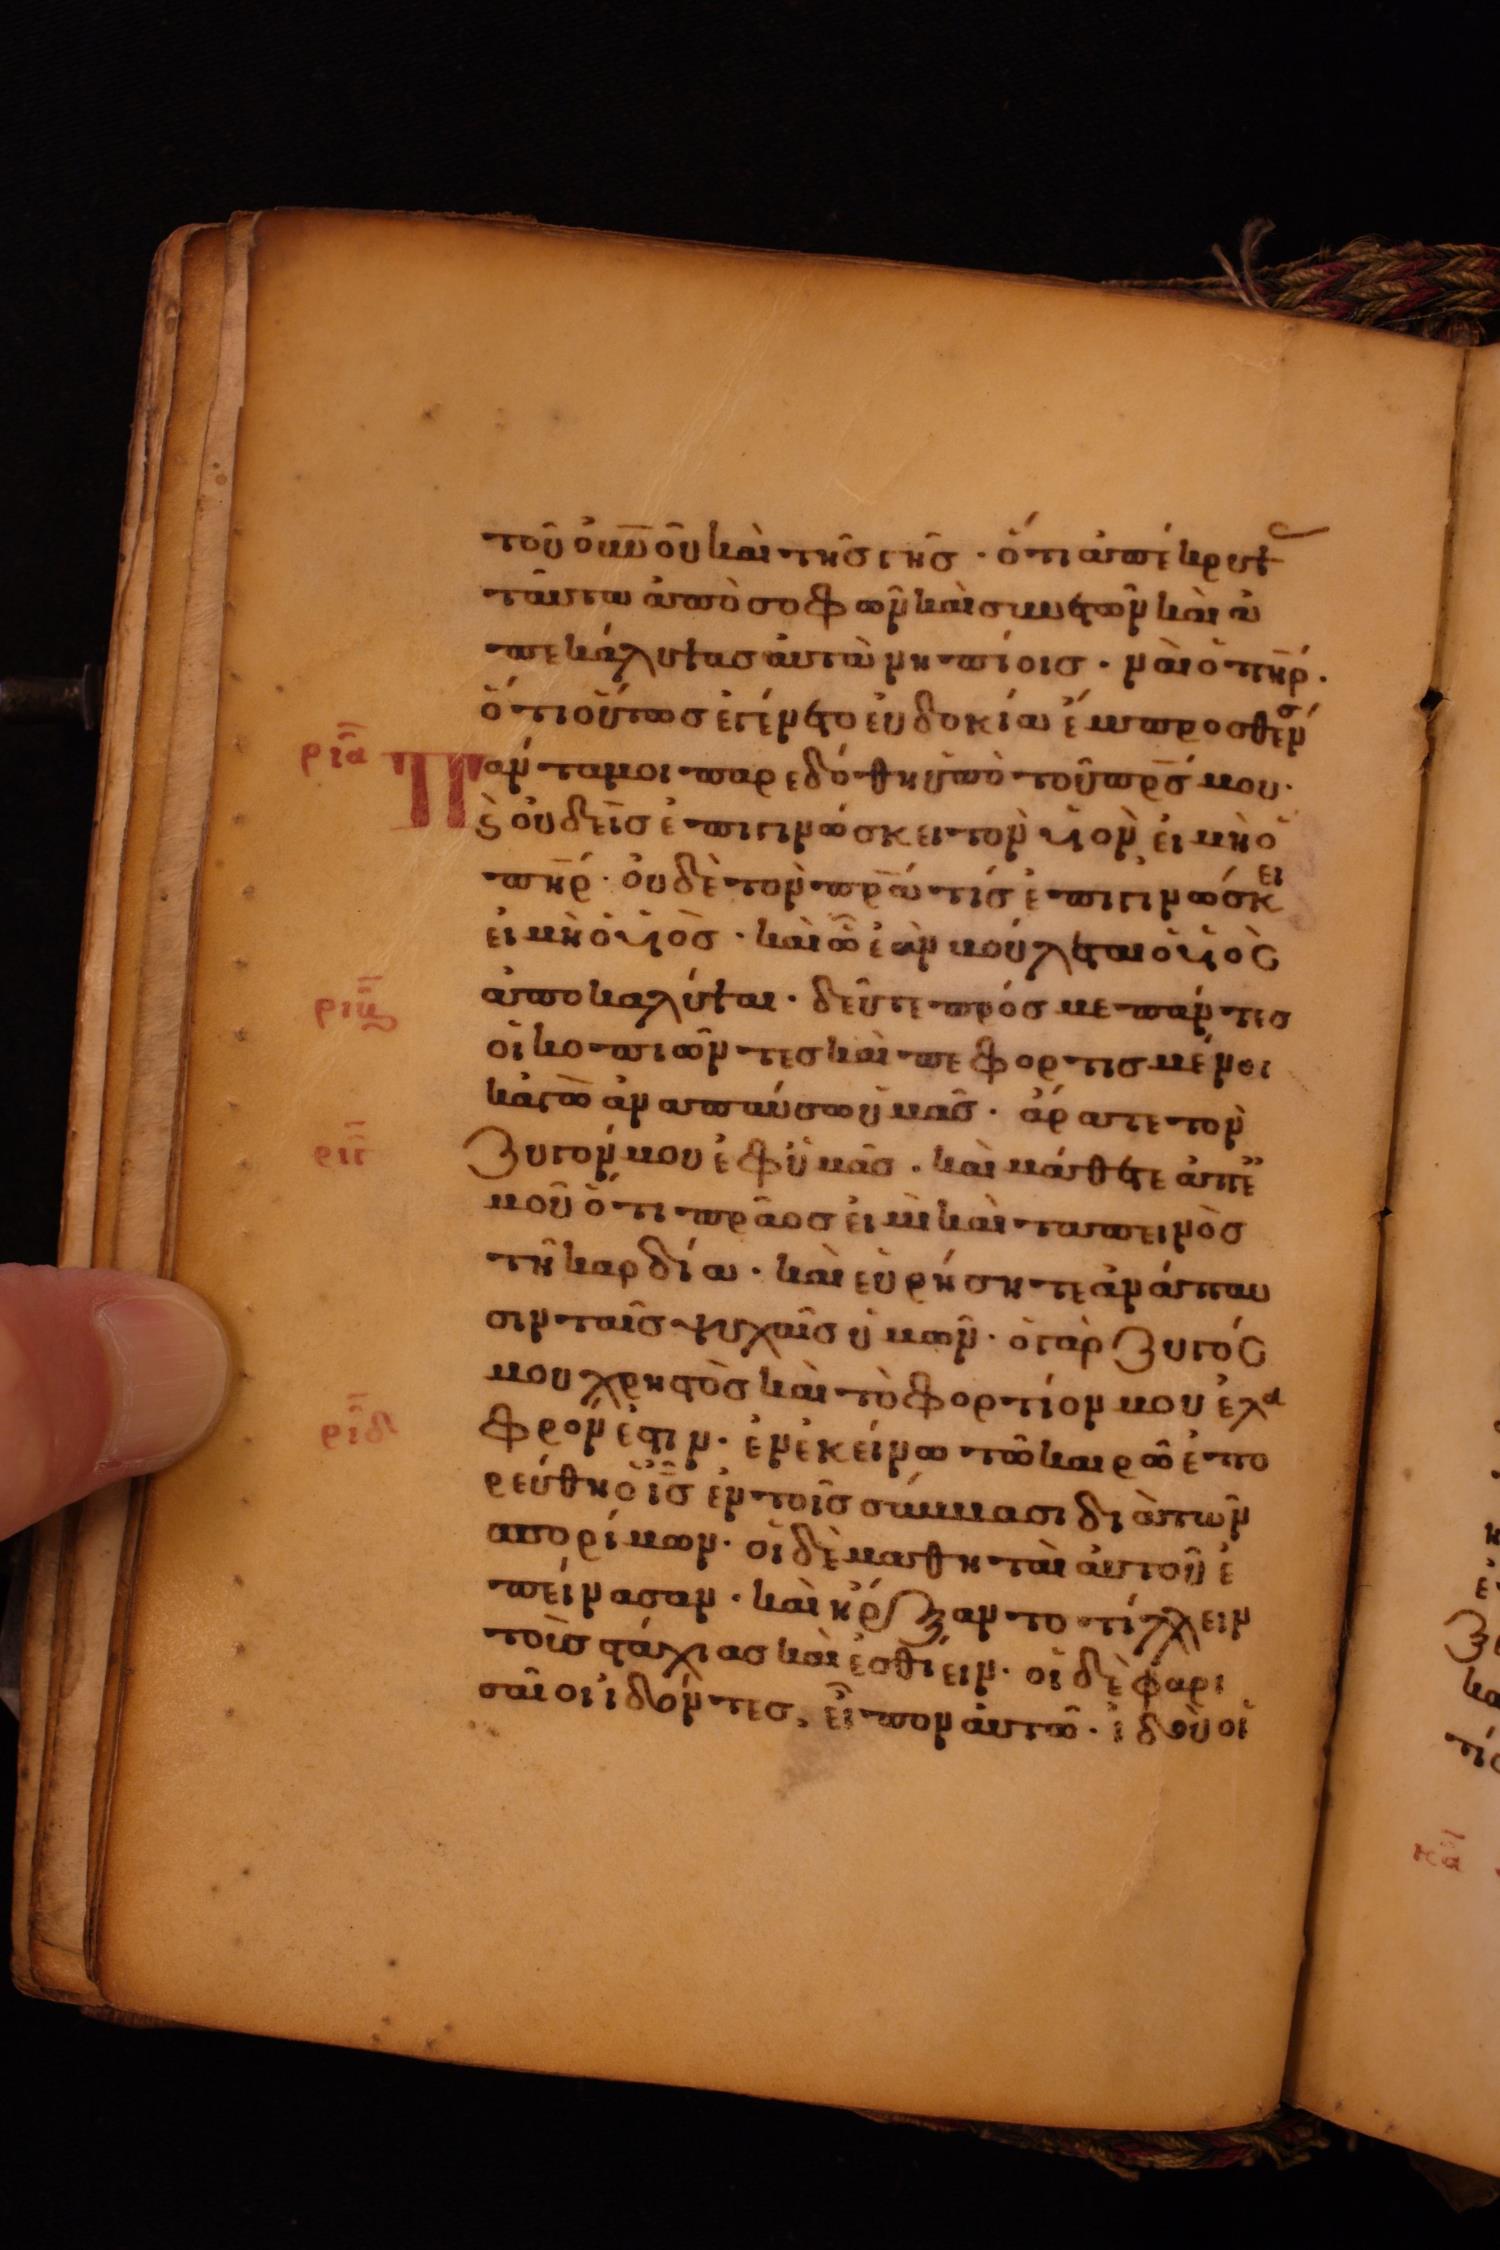 τοῦ οὐνοῦ καὶ τῆς γῆς · ὅτι ἀπέκρυψ
ταῦτα ἀπὸ σοφῶν καὶ συνετῶν καὶ ἀ
πεκάλυψας αὐτὰ νηπίοις · ναὶ ὁ πηρ ·
ὅτι οὕτως ἐγένετο εὐδοκία ἔμπροσθέν σ
ρια Πάντα μοι παρεδόθη ὑπὸ τοῦ πρς μου ·
ϗ οὐδεὶς ἐπιγινώσκει τὸν υἱὸν εἰ μὴ ὁ
πηρ · οὐδὲ τὸν πρα τίς ἐπιγινώσκει
εἰ μὴ ὁ υἱὸς · καὶ ὧ ἐὰν βούληται ὁ υἱὸς
ἀποκαλύψαι · δεῦτε πρός με πάντες
οἱ κοπιῶντες καὶ πεφορτισμένοι
κἀγὼ ἀναπαύσω ὑμᾶς · ἄρατε τὸν
ριγ ζυγόν μου ἐφ ὑμᾶς · καὶ μάθετε ἀπ ἐ
μοῦ ὅτι πρᾶος εἰμὶ καὶ ταπεινὸς
τῆ καρδία · καὶ εὑρήσητε ἀνάπαυ
σιν ταῖς ψυχαῖς ὑμῶν · ὁ γὰρ ζυγός
μου χρηστὸς καὶ τὸ φορτίον μου ἐλα
ριδ φρόν ἐστιν · ἐν ἐκείνω τῶ καιρῶ ἐπο
ρεύθη ὁ ις ἐν τοῖς σάββασι διὰ τῶν
σπορίμων · οἱ δὲ μαθηταὶ αὐτοῦ ἐ
πείνασαν · καὶ ἤρξαντο τίλλειν
τοὺς στάχυας καὶ ἐσθίειν · οἱ δὲ φαρι
σαῖοι ἰδόντες, εἶπον αὐτῶ · ἰδοὺ οἱ